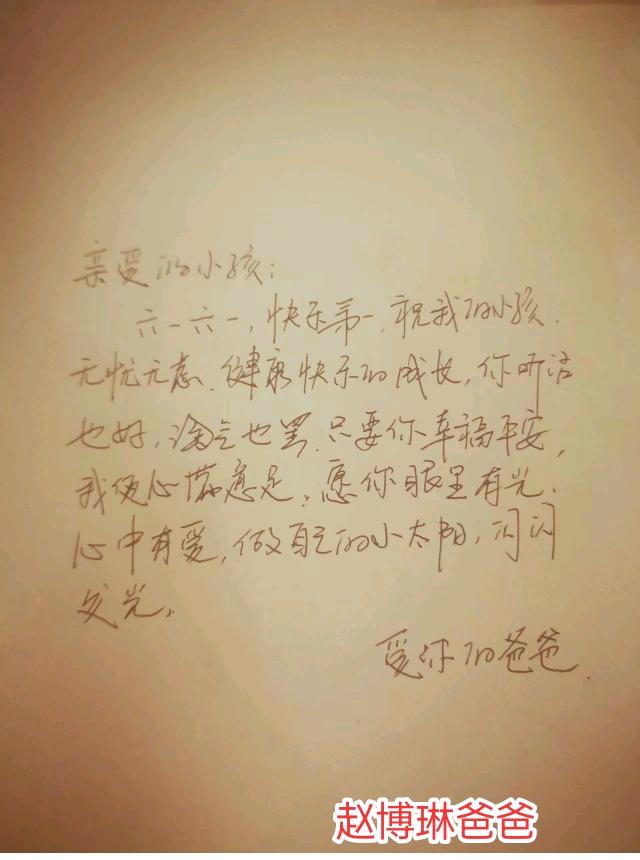 亲爱的小孩：
六一六一，快乐第一，祝我的小孩，
无忧无虑、健康快乐的成长，你听话
也好，淘气也罢，只要你幸福平安，
我便心满意足，愿你眼里有光，
心中有爱，做自己的小太阳，闪闪
发光。
爱你的爸爸.
赵博琳爸爸